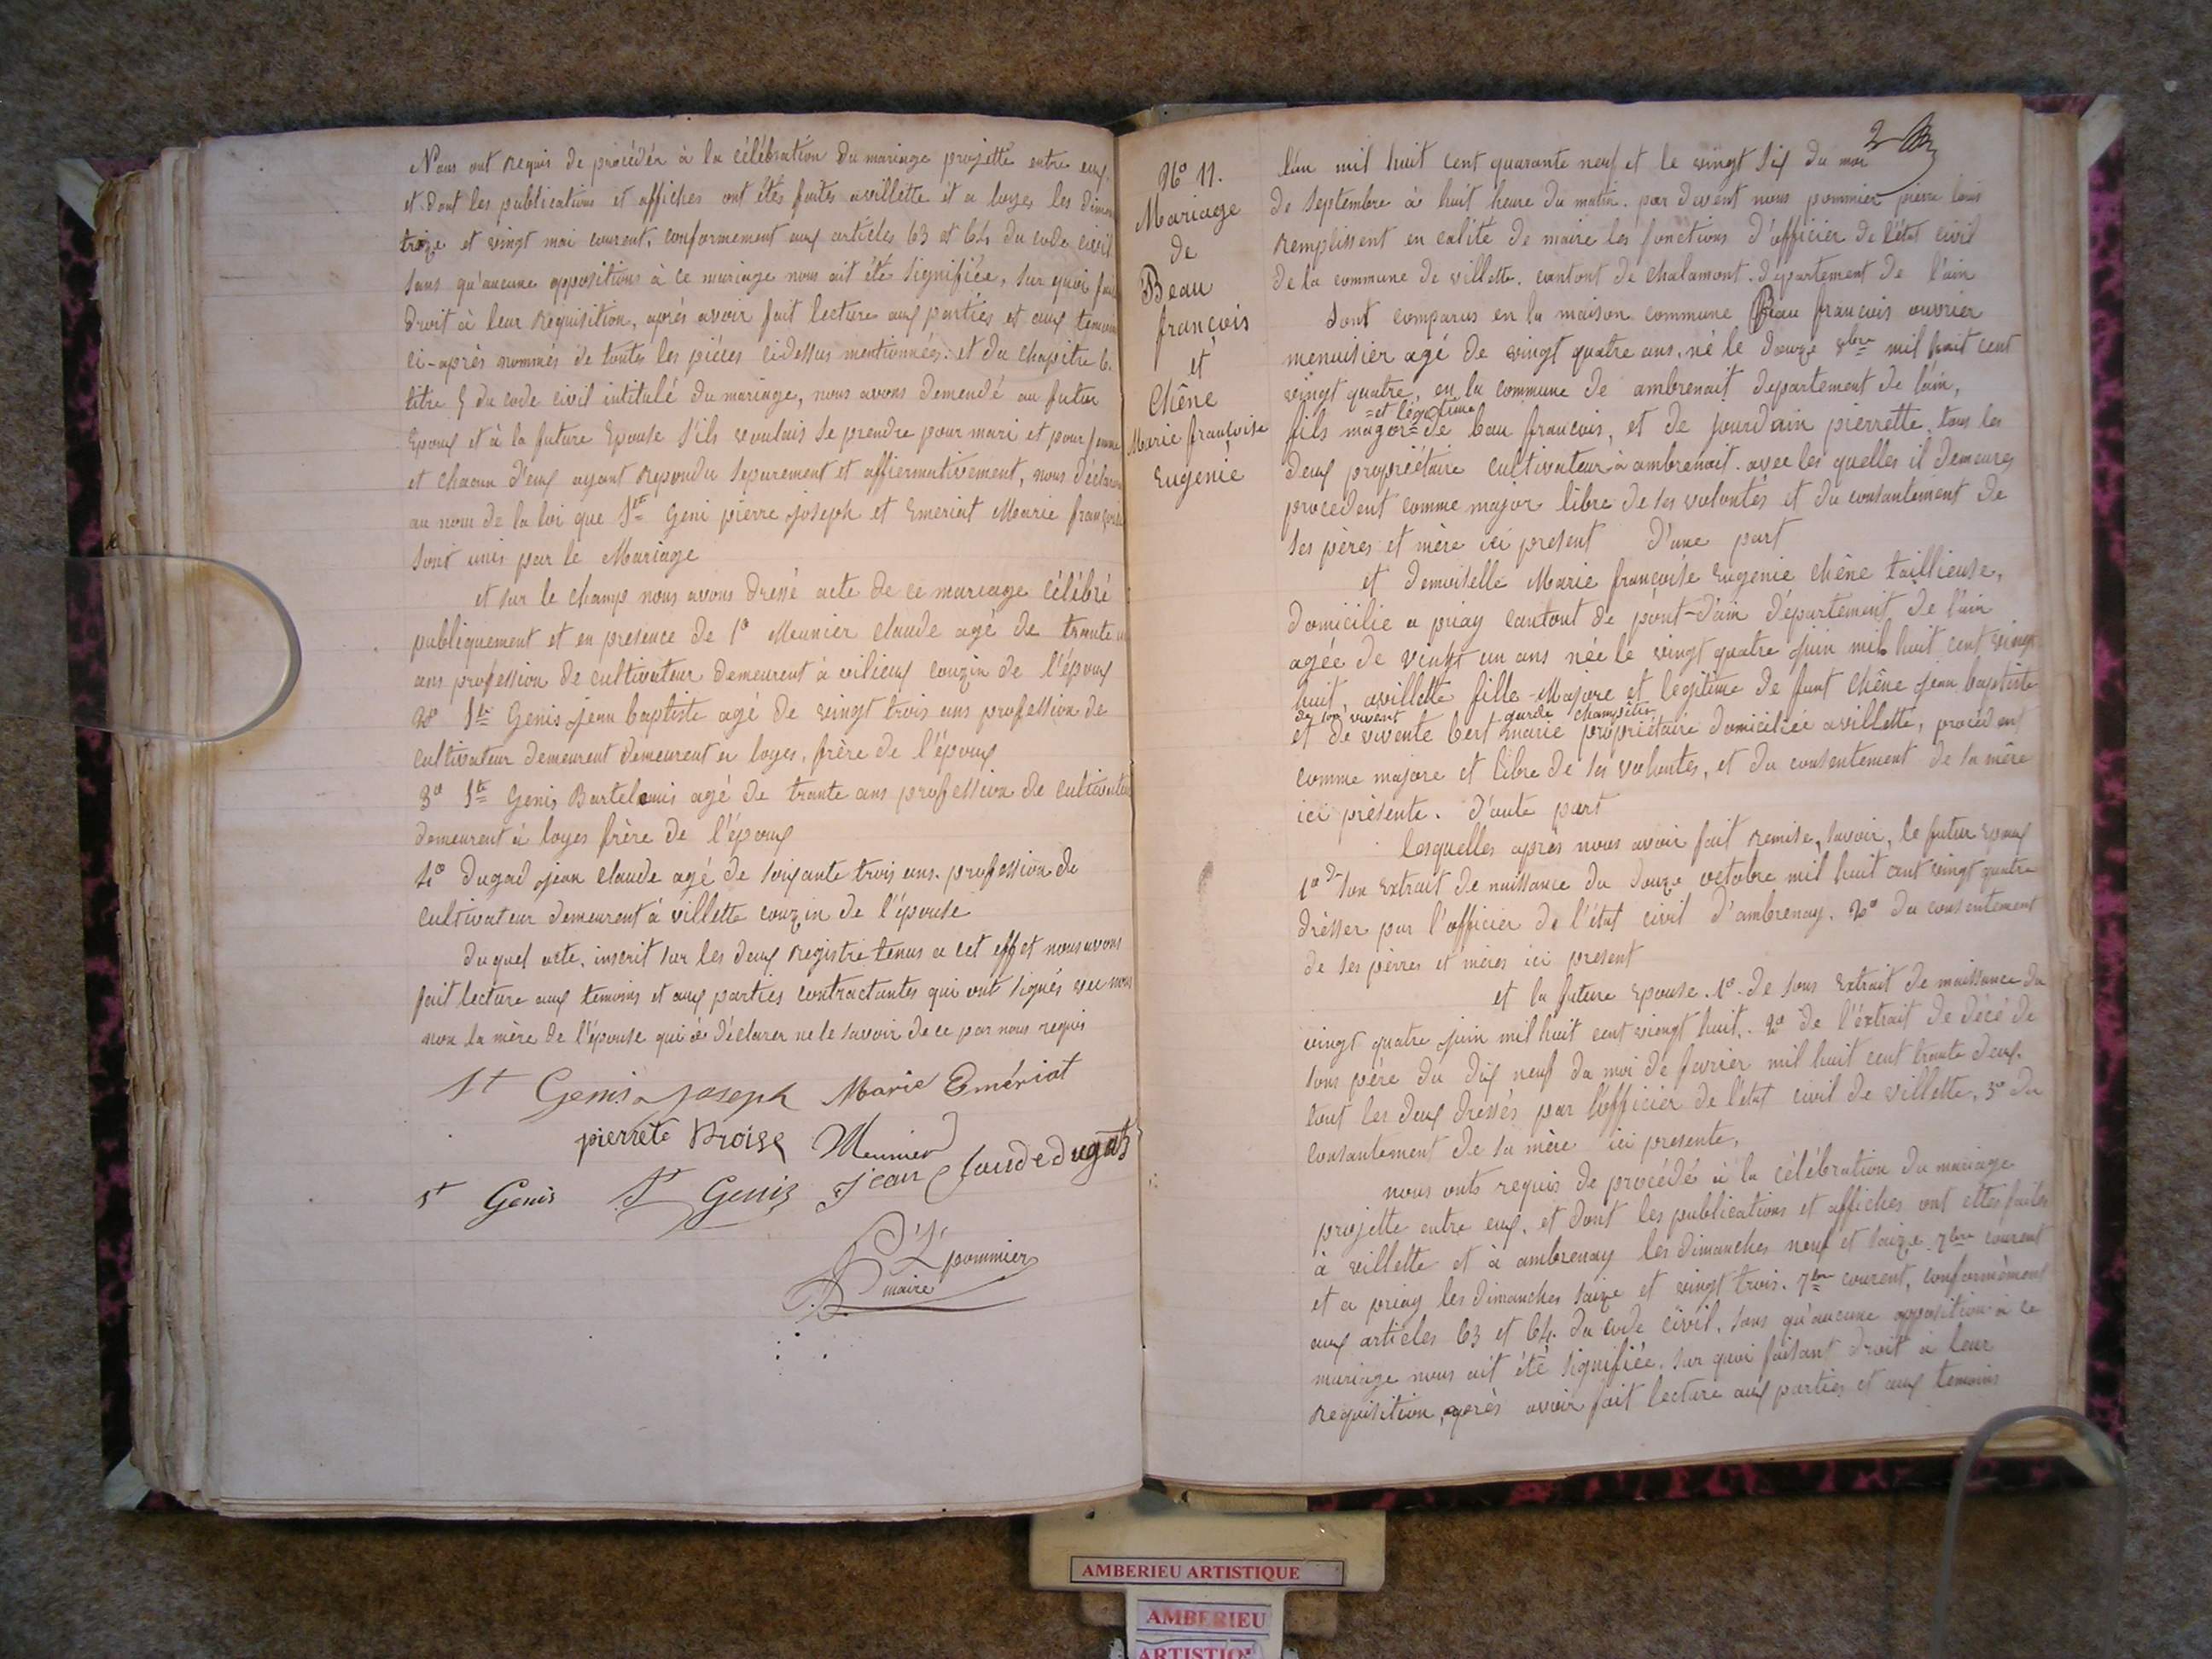 Nous ont requis de procédér à la célébration du mariage projetté entre eux
et dont les publications et affiches ont étés faites avillette et a loyes les diman
treize et vingt mai courent, conformement aux articles 63 et 64 du code civil
sans qu'aucune oppositions à ce mariage nous ait été signifiée, sur quoi fais
droit à leur requisition, après avoir fait lecture aux parties et aux temoins
ci-après nommés de toutes les pièces cidessus mentionnées et du chapitre 6.
titre 5 du code civil intitulé du mariage, nous avons demendé au futur
Epoux et à la future Epouse s'ils voulais se prendre pour mari et pour femme
et chacun d'eux ayant repondu separement et affirmativement, nous déclaron
au nom de la loi que St Geni pierre joseph et Emeriat Marie françoise
sont unis par le Mariage
et sur le champs nous avons dressé acte de ce mariage célébré
publiquement et en presence de 1° Meunier claude agé de trante
ans profession de cultivateur demeurent à vilieux couzin de l'époux
2° St Genis jean baptiste agé de vingt trois ans profession de
cultivateur demeurent demeurent a loyes, frère de l'époux
3° St Genis Bartelemis agé de trante ans profession de cultivateur
demeurent à loyes frère de l'époux
4° dugad jean claude agé de soixante trois ans profession de
cultivateur demeurent à villette couzin de l'épouse
du quel acte, inscrit sur les deux registre tenus a cet effet nous avons
fait lecture aux temoins et aux parties contractantes qui ont signés avec nous
non la mère de l'épouse qui a déclarer ne le savoir de ce par nous requis
St Genis joseph Marie Emériat
pierrete Broise Meunier
St Genis St Genis jean Claude dugad
P. L. pommier
maire
2
N° 11.
Mariage
de
Beau
francois
et
Chêne
Marie françoise
Eugenie
l'an mil huit cent quarante neuf et le vingt six du moi
de septembre à huit heure du matin. par devent nous pommier pierre louis
remplissent en calité de maire les fonctions d'officier de l'état civil
de la commune de villette. cantont de chalamont. departement de l'ain
sont comparus en la maison commune Beau francois ouvrier
menuisier agé de vingt quatre ans, né le douze 8bre mil huit cent
vingt quatre, en la commune de ambrenait departement de l'ain,
=et légetime
fils magor= de bau francois, et de jourdain pierrette, tous les
deux propriétaire cultivateur à ambrenait. avec les quelles il demeures
procedent comme major libre de ses volontés et du consantement de
ses pères et mère ici present d'une part
et demoiselle Marie françoise Eugenie chêne taillieuse,
domicilie a priay cantont de pont-d'ain département de l'ain
agée de vingt un ans née le vingt quatre juin mil huit cent vingt
huit, avillette fille-Majore et legitime de funt chêne jean baptiste
de son vivent garde champêtre
et de vivente bert marie propriétaire domiciliée avillette, procedent
comme majore et libre de ses volontés, et du consentement de sa mère
ici présente. d'aute part
lesquelles après nous avoir fait remise, savoir, le futur Epoux
1° d son Extrait de naissance du douze octobre mil huit cent vingt quatre
drésser par l'officier de l'état civil d'ambrenay. 2° du consentement
de ses pérres et mères ici present
et la future Epouse. 1° de sons Extrait de naissance du
vingt quatre juin mil huit cent vingt huit. 2° de l'éxtrait de décé de
sons père du dix neuf du moi de favrier mil huit cent trante deux.
tout les deux dressés par l'officier de l'état civil de villette, 3° du
consantement de sa mère ici presente,
nous onts requis de procédé à la célébration du mariage
projette entre eux, et dont les publications et affiches ont ettes faites
à villette et à ambrenay les dimanches neuf et saize 7bre courent
et a priay les dimanches saize et vingt trois. 7bre courent, conformément
aux articles 63 et 64 du code civil. sans qu'aucune opposition à ce
mariage nous ait été signifiée. sur quoi faisant droit à leur
requisition, après avoir fait lecture aux parties et aux temoins
AMBERIEU ARTISTIQUE
AMBERIEU
ARTISTIQ